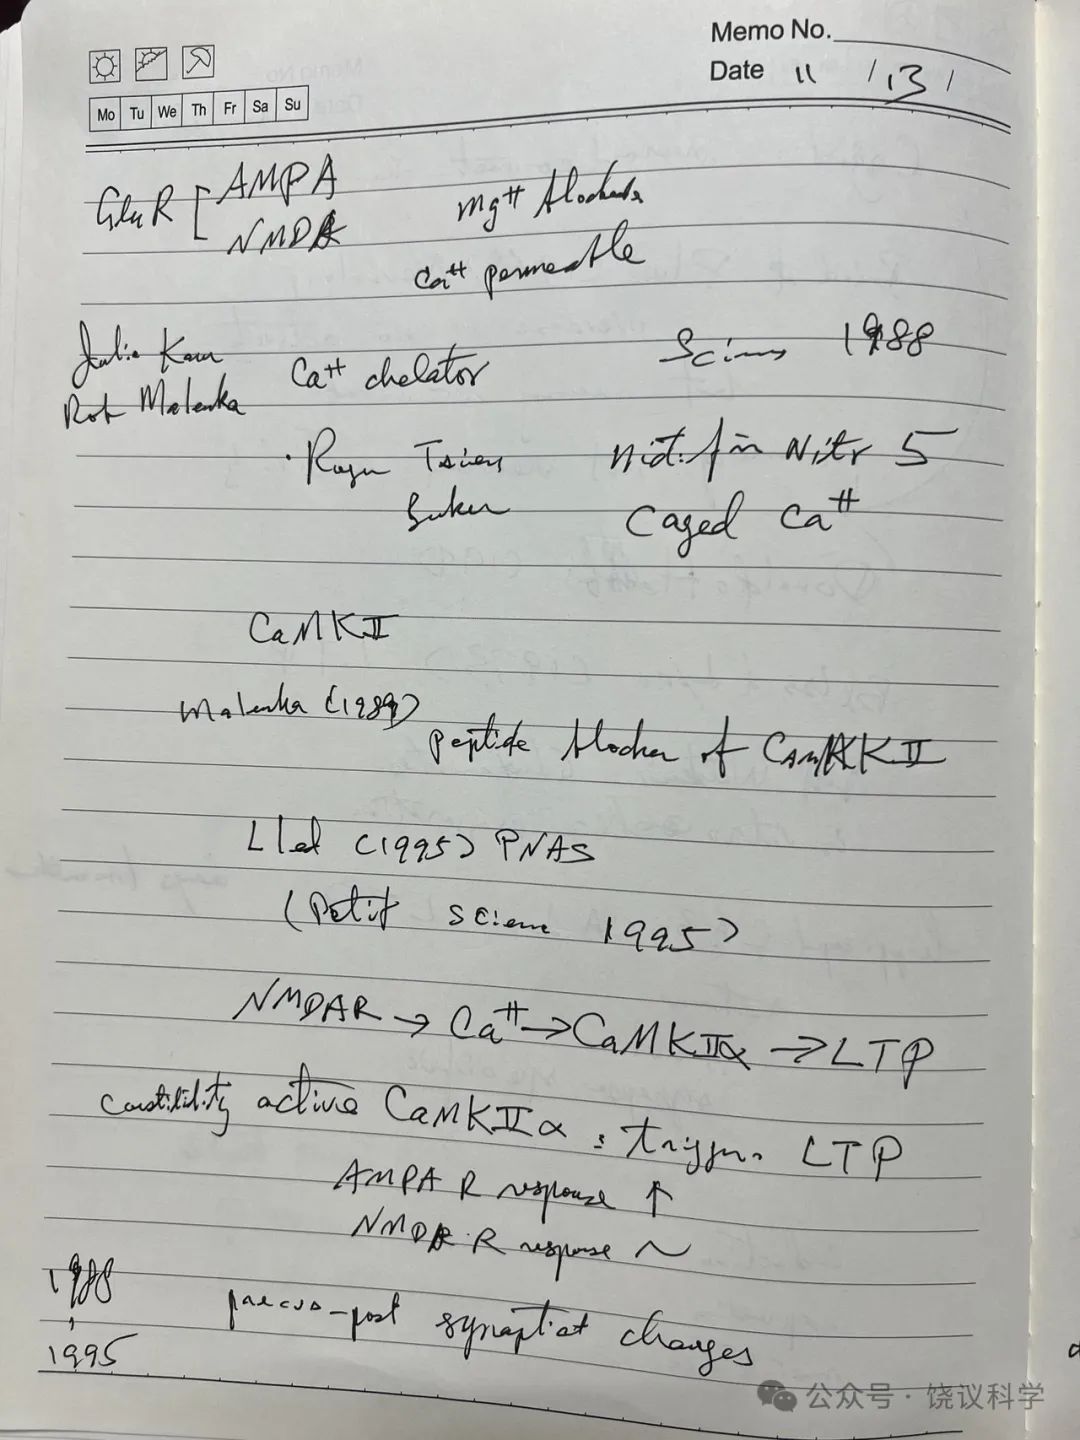 Memo No.
Date 11 / 13 /
Mo Tu We Th Fr Sa Su
GluR [ AMPA
NMDA
Mg++ blockade
Ca++ permeable
Julie Kauer
Rob Malenka
Ca++ chelator
Science 1988
· Roger Tsien
Nitr 5
Caged Ca++
CaMKII
Malenka (1989)
peptide blocker of CaMKII
Lled (1995) PNAS
(Petit Science 1995)
NMDAR → Ca++ → CaMKIIα → LTP
active CaMKIIα : triggers LTP
AMPA R response ↑
NMDA R response ~
1988
1995
pre-cus-post synaptic changes
公众号 · 饶议科学